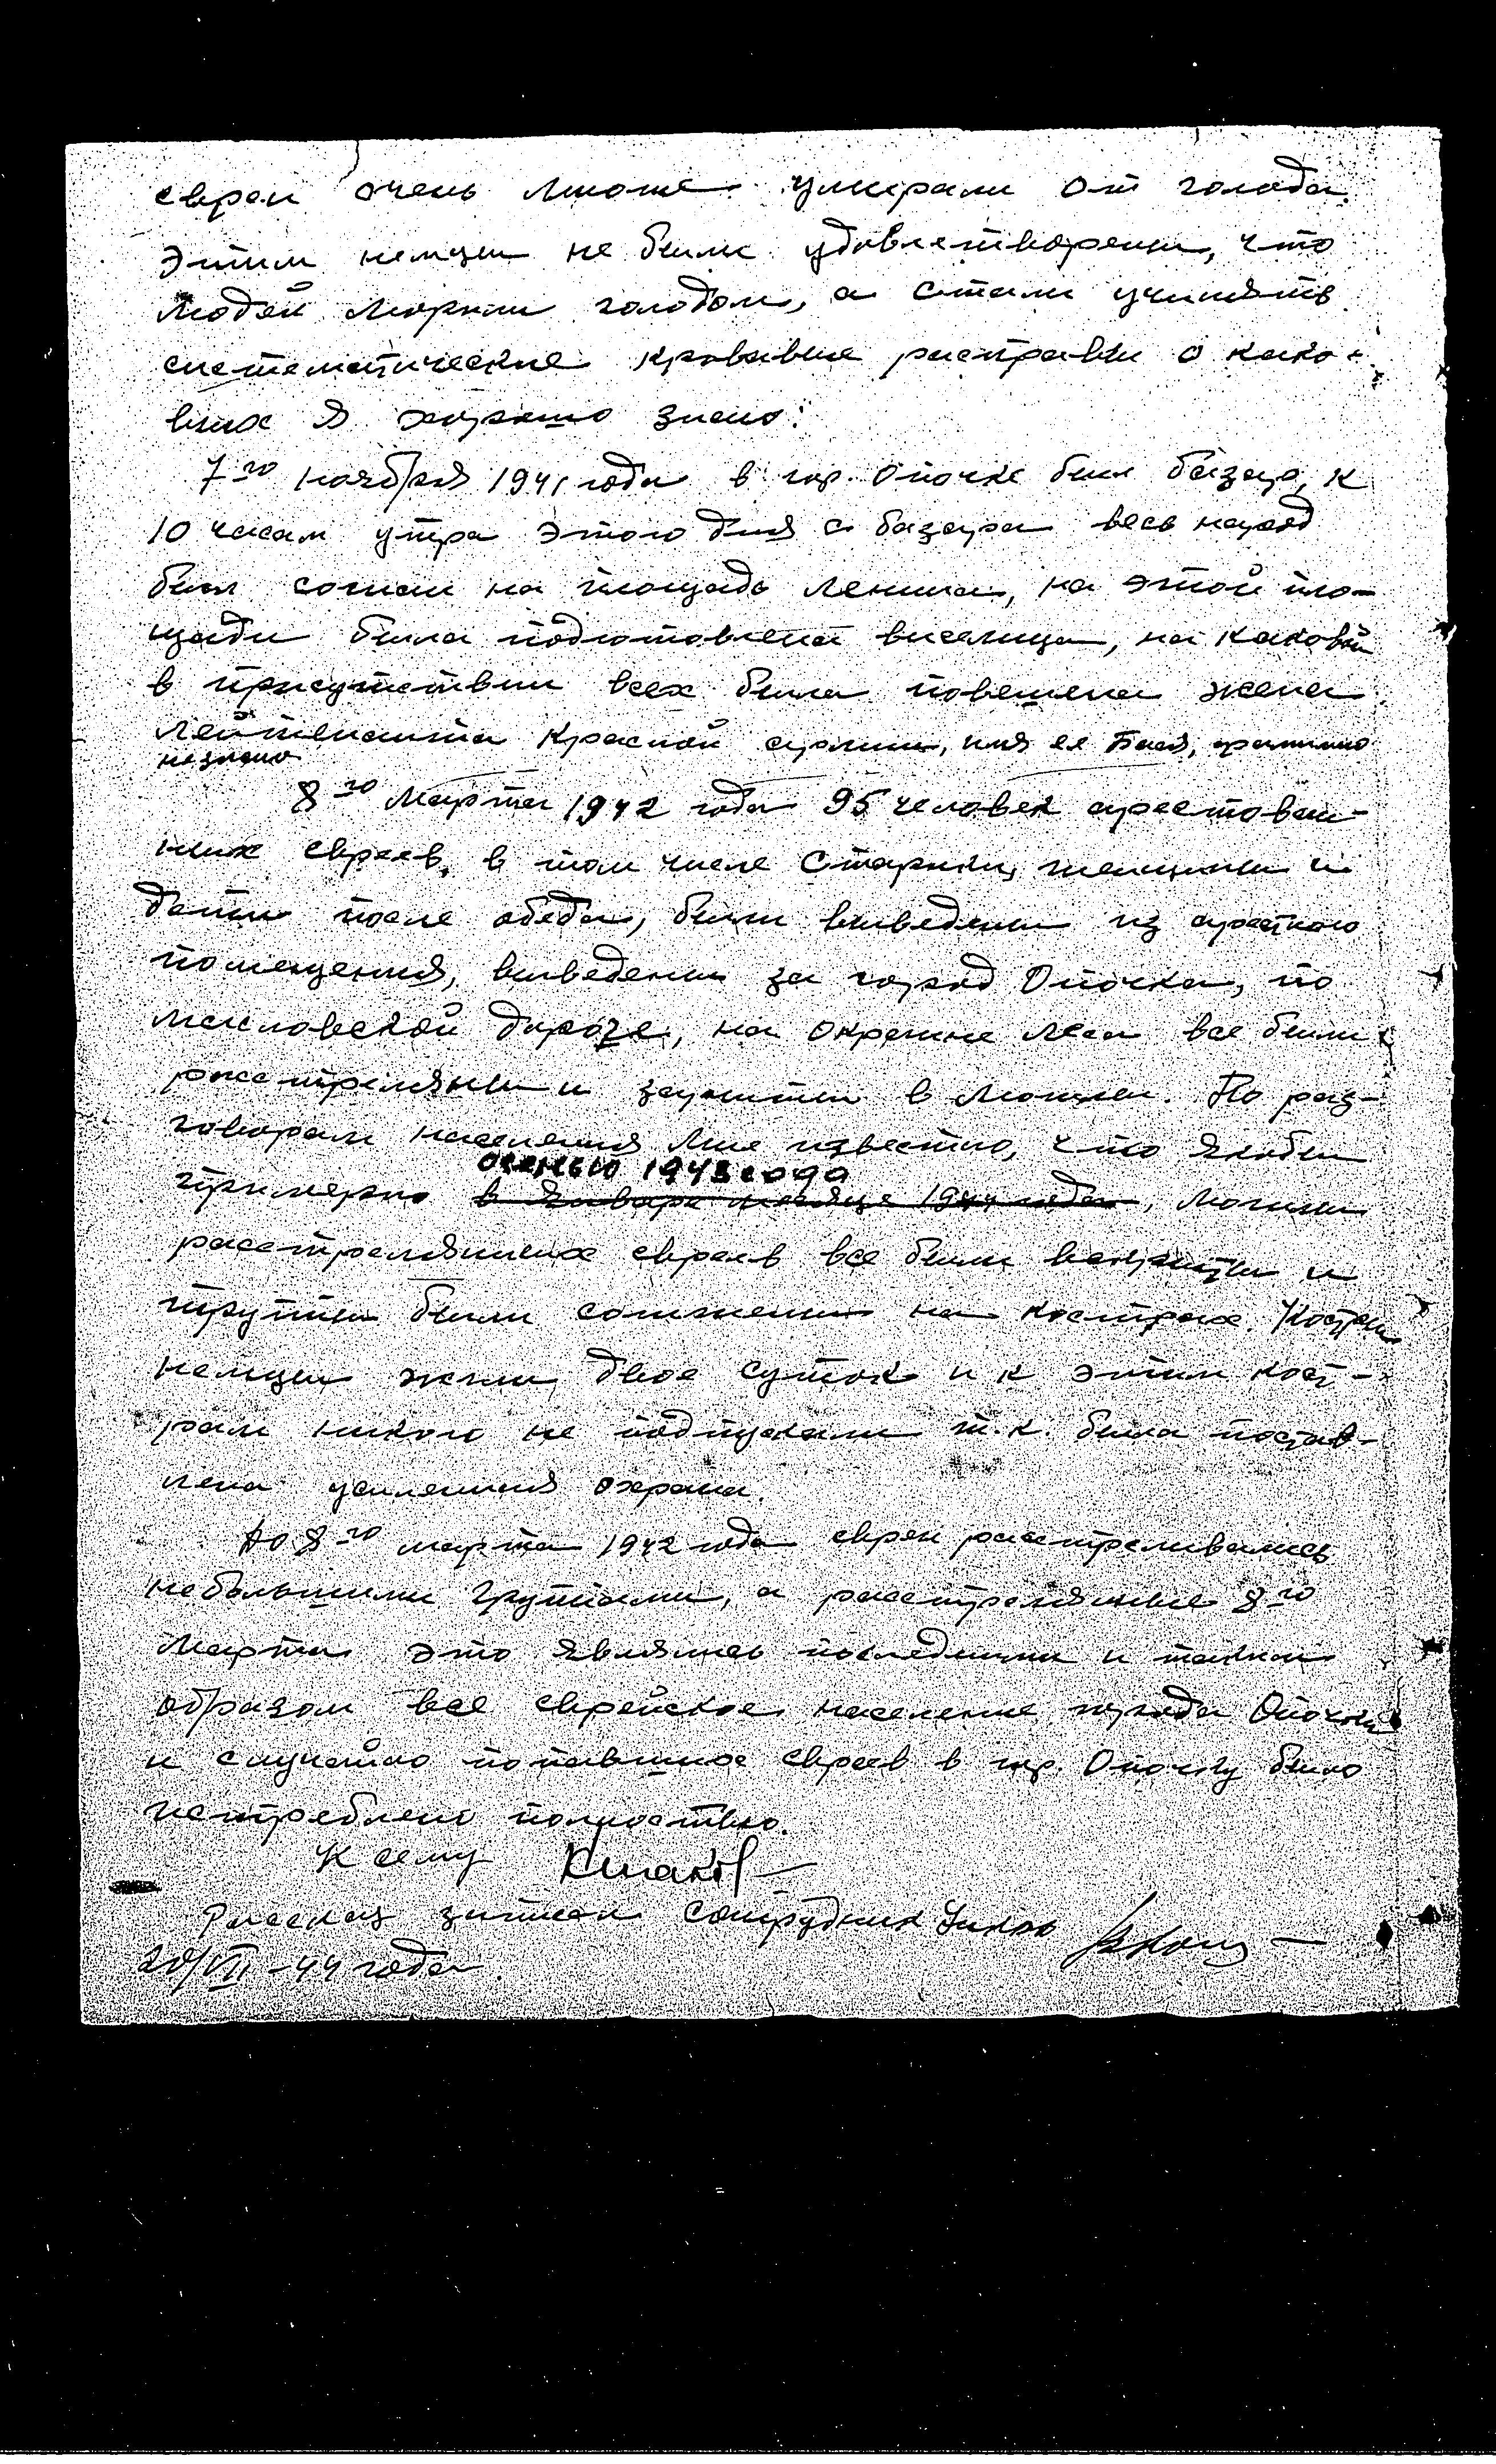 евреи очень многие умирали от голода.
Этим немцы не были удовлетворены, что
людей морили голодом, а стали учинять
систематические кровавые расправы о како-
вых я хорошо знаю:
7го ноября 1941 года в гор. Опочке был базар, к
10 часам утра этого дня с базара весь народ
был согнан на площадь Ленина, на этой пло-
щади была подготовлена виселица, на каковой
в присутствии всех была повешена жена
лейтенанта Красной армии, имя ее Бася, фамилию
не знаю
8го марта 1942 года 95 человек арестован-
ных евреев, в том числе старики, женщины и
дети после обеда, были выведены из арестного
помещения, выведены за город Опочка, по
масловской дороге, на окраине леса все были
расстреляны и зарыты в могилы. По раз-
говорам населения мне известно, что якобы
осенью 1943 года
примерно в январе месяце 1944 года, могилы
расстрелянных евреев все были вскрыты и
трупы были сожжены на кострах. Костры
немцы жгли двое суток и к этим кост-
рам никого не подпускали т.к. была постав-
лена усиленная охрана.
До 8го марта 1942 года евреи расстреливались
небольшими группами, а расстрелянные 8го
марта это являлись последними и таким
образом все еврейское население города Опочки
и случайно попавших евреев в гор. Опочку было
истреблено полностью.
К сему
Рассказ записал сотрудник
20/VII-44 года.